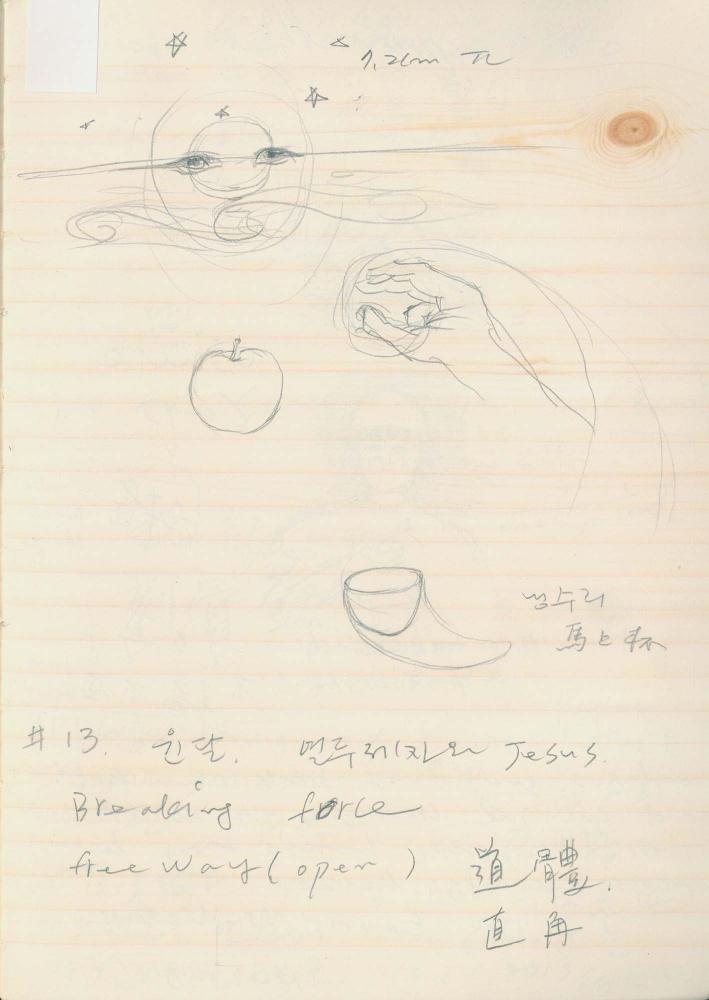 7.2cm TL
냉수리
馬上杯
#13. 윤달. 열두제자와 Jesus.
Breaking force
free way (open) 道體.
直再